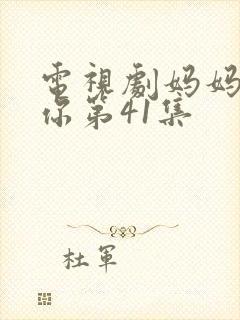 電視劇妈妈
你第41集
杜軍